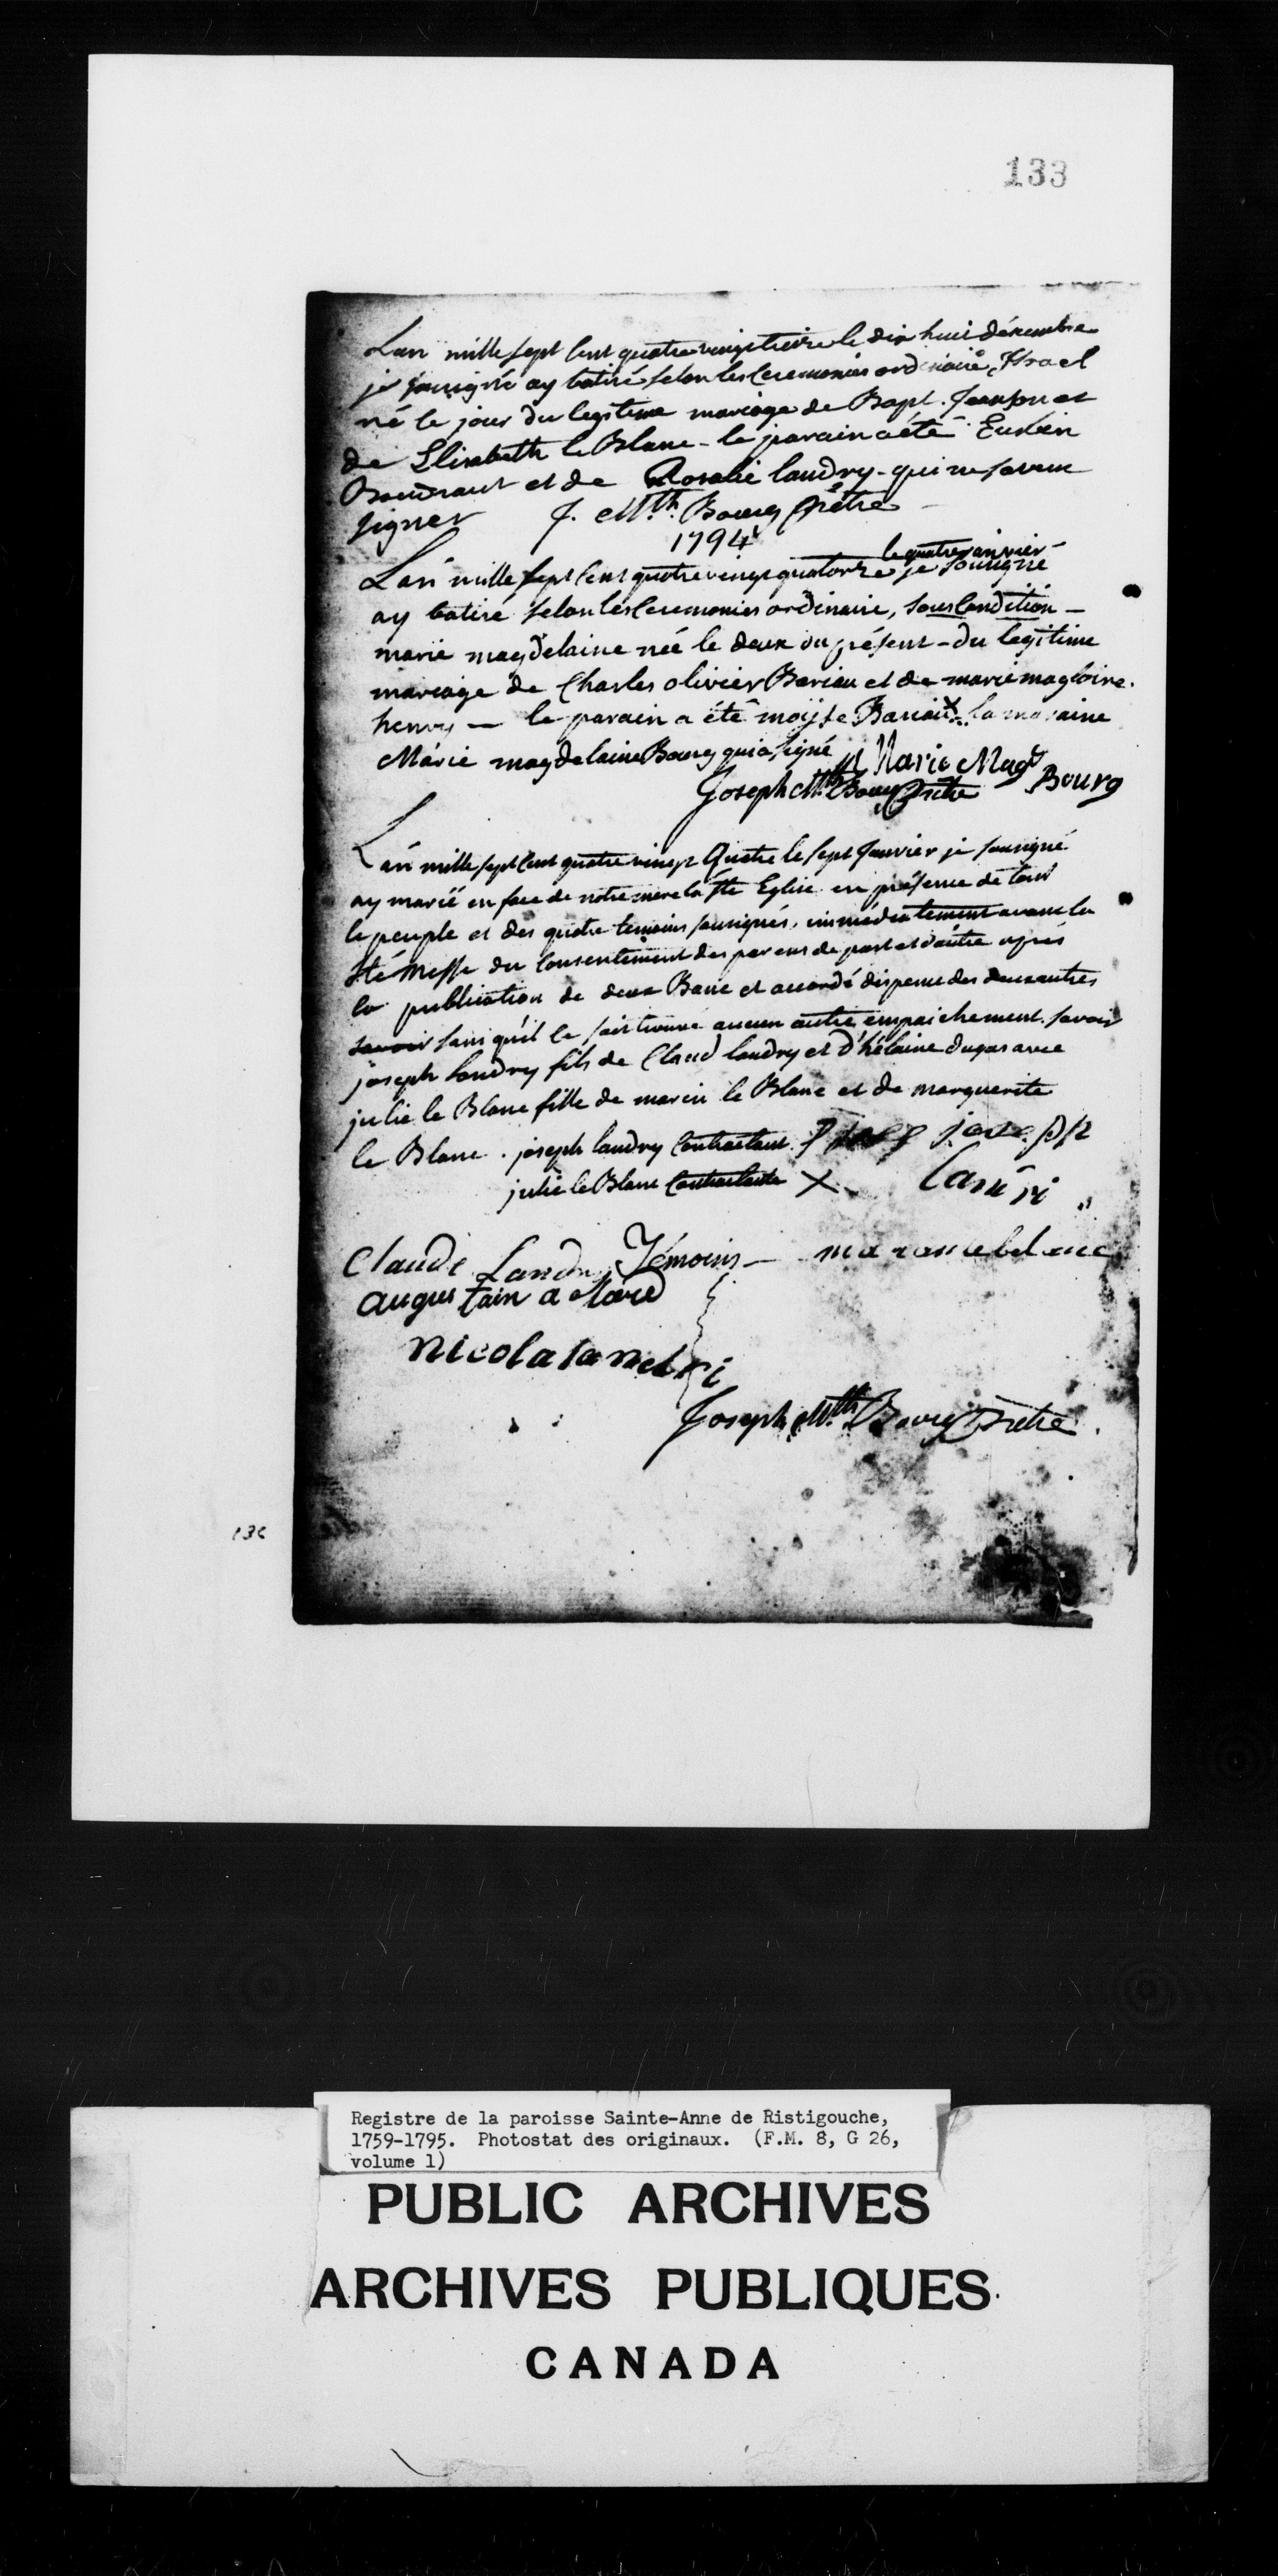 133
Lan mille sept cent quatre vingt treize le dix huit décembre
je sousigné ay batisé selon les ceremonies ordinaire, Israel
né le jour du legitime mariage de Bapt. Jeanson et
de Elisabeth le Blanc - le parain a été
Boudraut et de Rosalie landry - qui ne savent
signer J. Mth. Bourg Prêtre
1794
le quatre janvier
Lan mille sept cent quatre vingt quatorze je sousigné
ay batisé selon les ceremonies ordinaire, sous condition -
marie magdelaine née le deux du présent - du legitime
mariage de Charles olivier Bariau et de marie magloire
henry - le parain a été moyse Bariau X la maraine
Marie magdelaine Bourg qui a signé Marie Magd
Joseph Mth. Bourg Prêtre Bourg
Lan mille sept cent quatre vingt Quatre le sept Janvier je sousigné
ay marié en face de notre mere la Ste Eglise en présence de tout
le peuple et des quatre temoins sousignés, immédiatement avant la
Ste Messe du consentement des parens de part et d'autre après
la publication de deux Banc et accordé dispense des deux autres
savoir sans qu'il se soit trouvé aucun autre empaichement. savoir
joseph landry fils de Claud landry et d'hélaine dugas avec
julie le Blanc fille de marin le Blanc et de marguerite
le Blanc. joseph landry Contractant
julie le Blanc Contractante X
Claude Landry Témoins -
augustain a lard
nicola landri
Joseph Mth. Bourg Prêtre.
136
Registre de la paroisse Sainte-Anne de Ristigouche,
1759-1795. Photostat des originaux. (F.M. 8, G 26,
volume 1)
PUBLIC ARCHIVES
ARCHIVES PUBLIQUES
CANADA